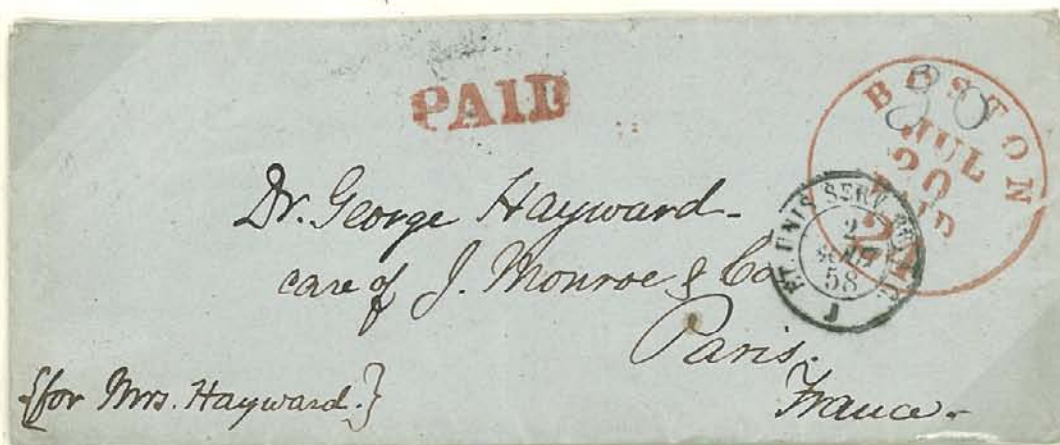 PAID
BOSTON
JUL
20
PAID
21
30
ET. UNIS SERV.
2
AOUT
58
J
Dr. George Hayward
care of J. Monroe & Co
Paris.
France.
{for Mrs. Hayward.}